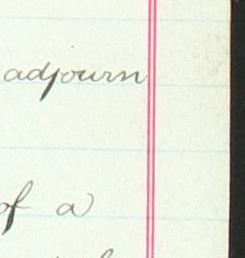 adjourn
of a